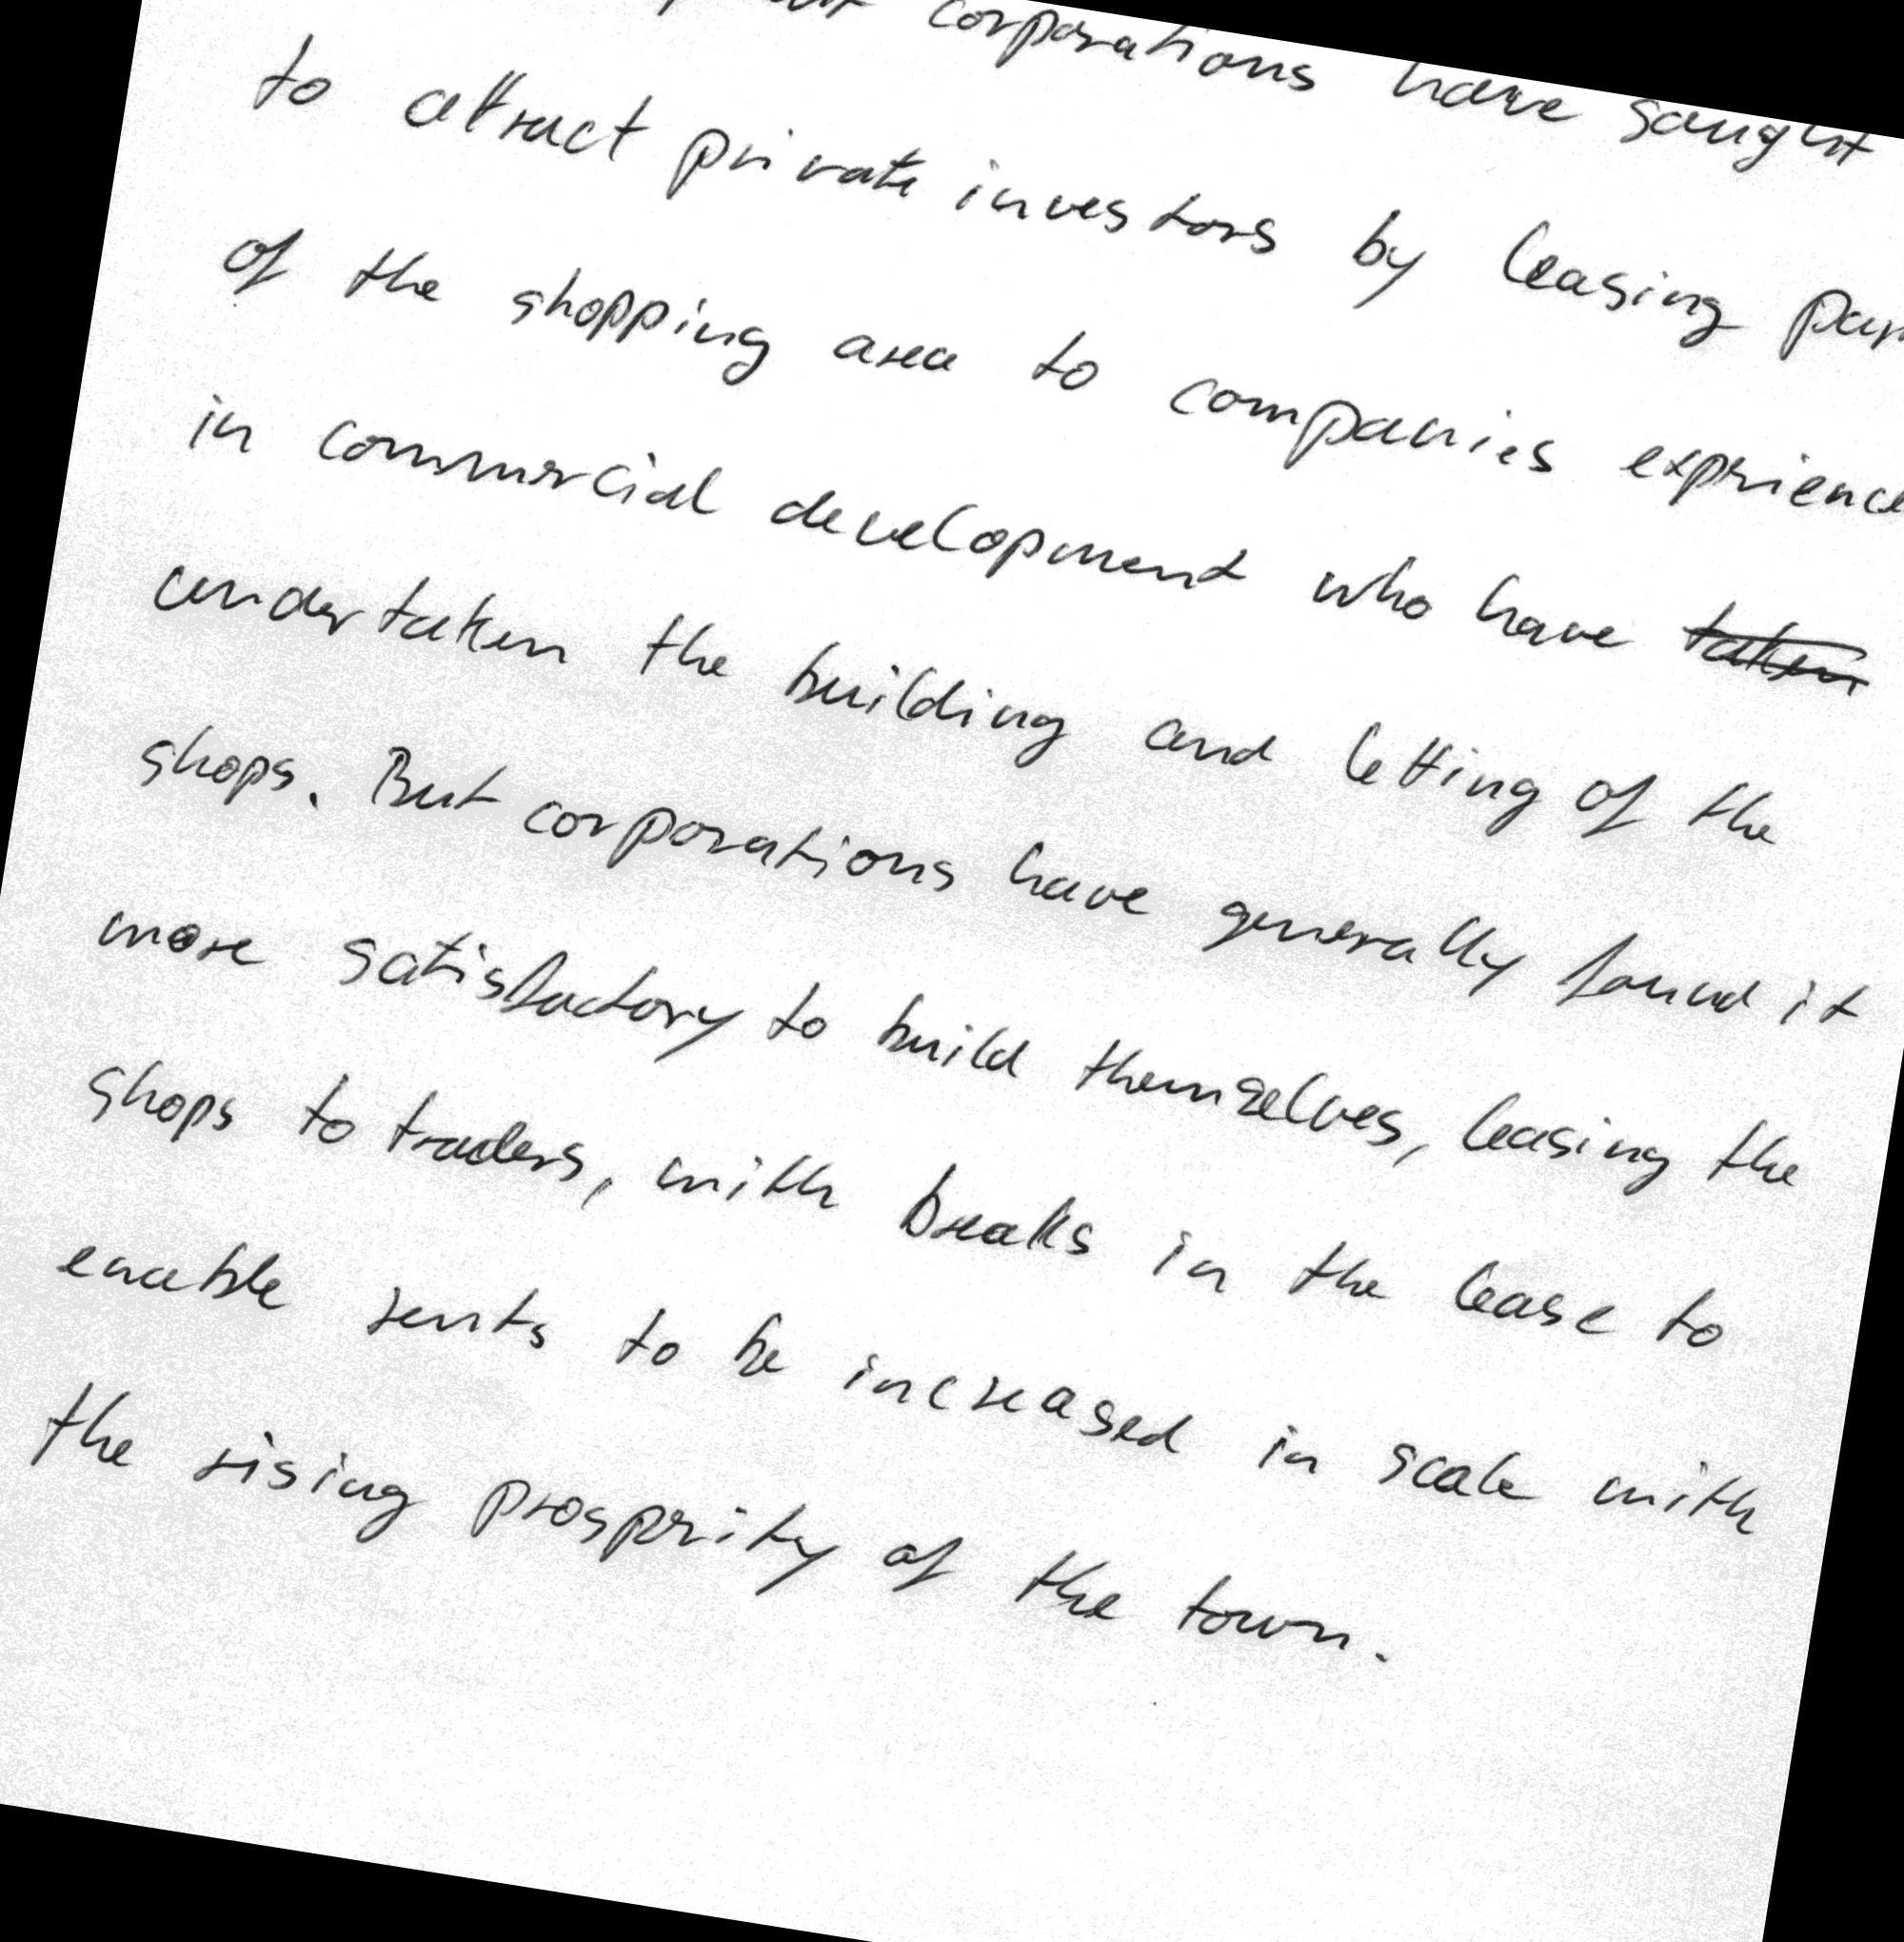 corporations have sought
to attract private investors by leasing
of the shopping area to companies
in commercial development who have taken
undertaken the building and letting of the
shops. But corporations have generally found it
more satisfactory to build themselves, leasing the
shops to traders, with breaks in the lease to
enable rents to be increased in scale with
the rising prosprity of the town.